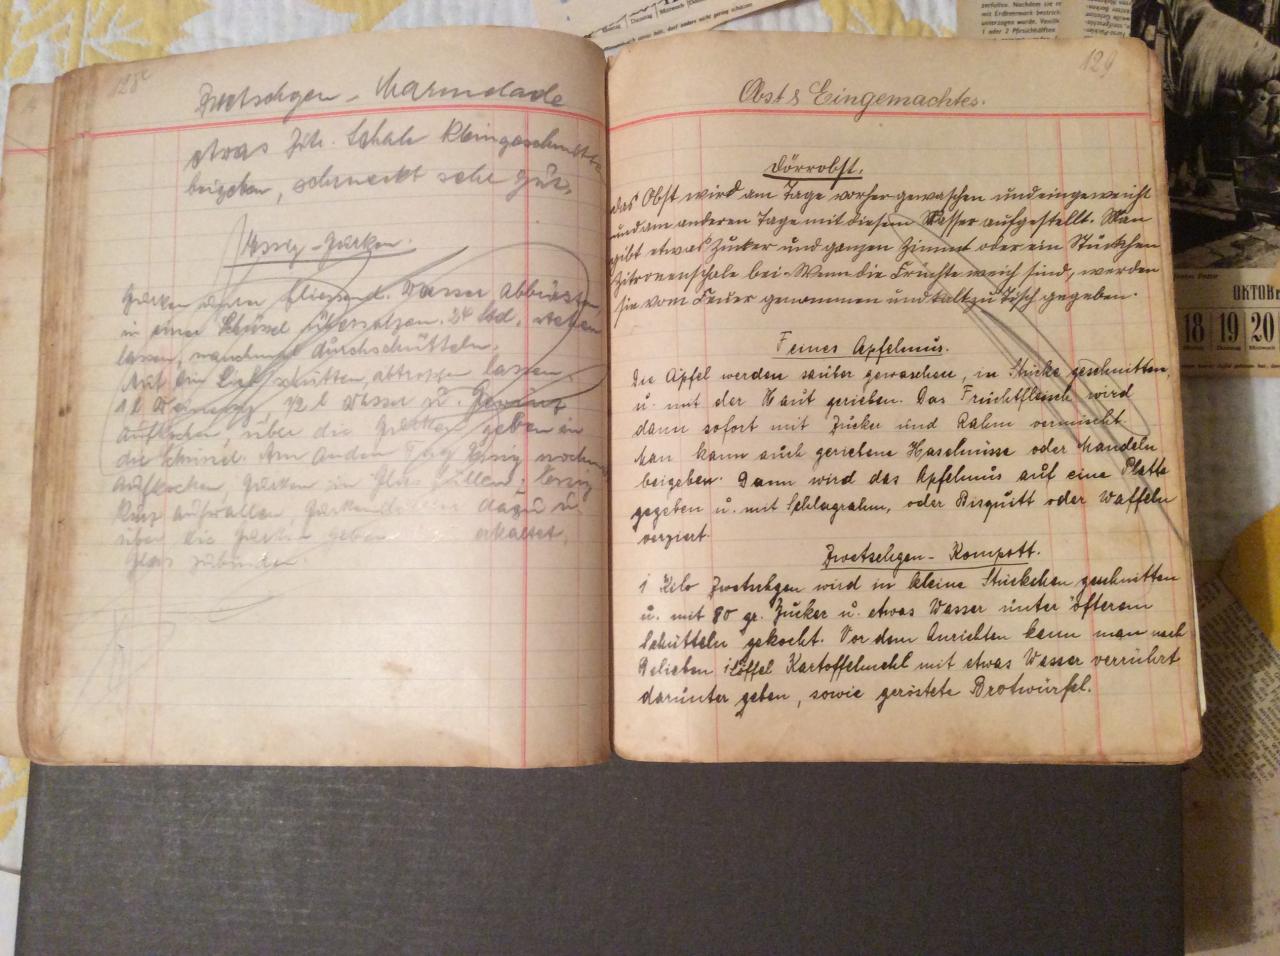 128
Zwetschgen - Marmelade
etwas Zitr. Schale kleingeschnitten
beigeben, schmeckt sehr gut.
Essig-Gurken.
Gurken unter fliessend. Wasser abbürsten,
in einer Schüssel übersalzen. 24 Std. stehen
lassen, manchmal durchschütteln.
Auf ein Sieb schütten, abtropfen lassen.
1 l Weinessig, 1/2 l Wasser u. Gewürz
aufkochen, über die Gurken geben in
die Schüssel. Am andern Tag Essig nochm.
aufkochen, Gurken in Glas füllen, Essig
kurz aufwallen, dazu u.
über die Gurken geben erkaltet,
Glas zubinden.
129
Obst & Eingemachtes.
Dörrobst.
das Obst wird am Tage vorher gewaschen und eingeweicht
und am anderen Tage mit diesem Wasser aufgestellt. Man
gibt etwas Zucker und ganzen Zimmt oder ein Stückchen
Zitronenschale bei. Wenn die Früchte weich sind, werden
sie vom Feuer genommen und kalt zu Tisch gegeben.
Feines Apfelmus.
Die Äpfel werden sauber gewaschen, in Stücke geschnitten,
u. mit der Haut gerieben. Das Fruchtfleisch wird
dann sofort mit Zucker und Rahm vermischt.
Man kann auch geriebene Haselnüsse oder Mandeln
beigeben. Dann wird das Apfelmus auf eine Platte
gegeben u. mit Schlagrahm, oder Bisquitt oder Waffeln
verziert.
Zwetschgen - Kompott.
1 Kilo Zwetschgen wird in kleine Stückchen geschnitten
u. mit 80 gr. Zucker u. etwas Wasser unter öfterem
Schütteln gekocht. Vor dem Anrichten kann man nach
Belieben 1 Löffel Kartoffelmehl mit etwas Wasser verrührt
darunter geben, sowie geröstete Brotwürfel.
OKTOBE
18 19 20